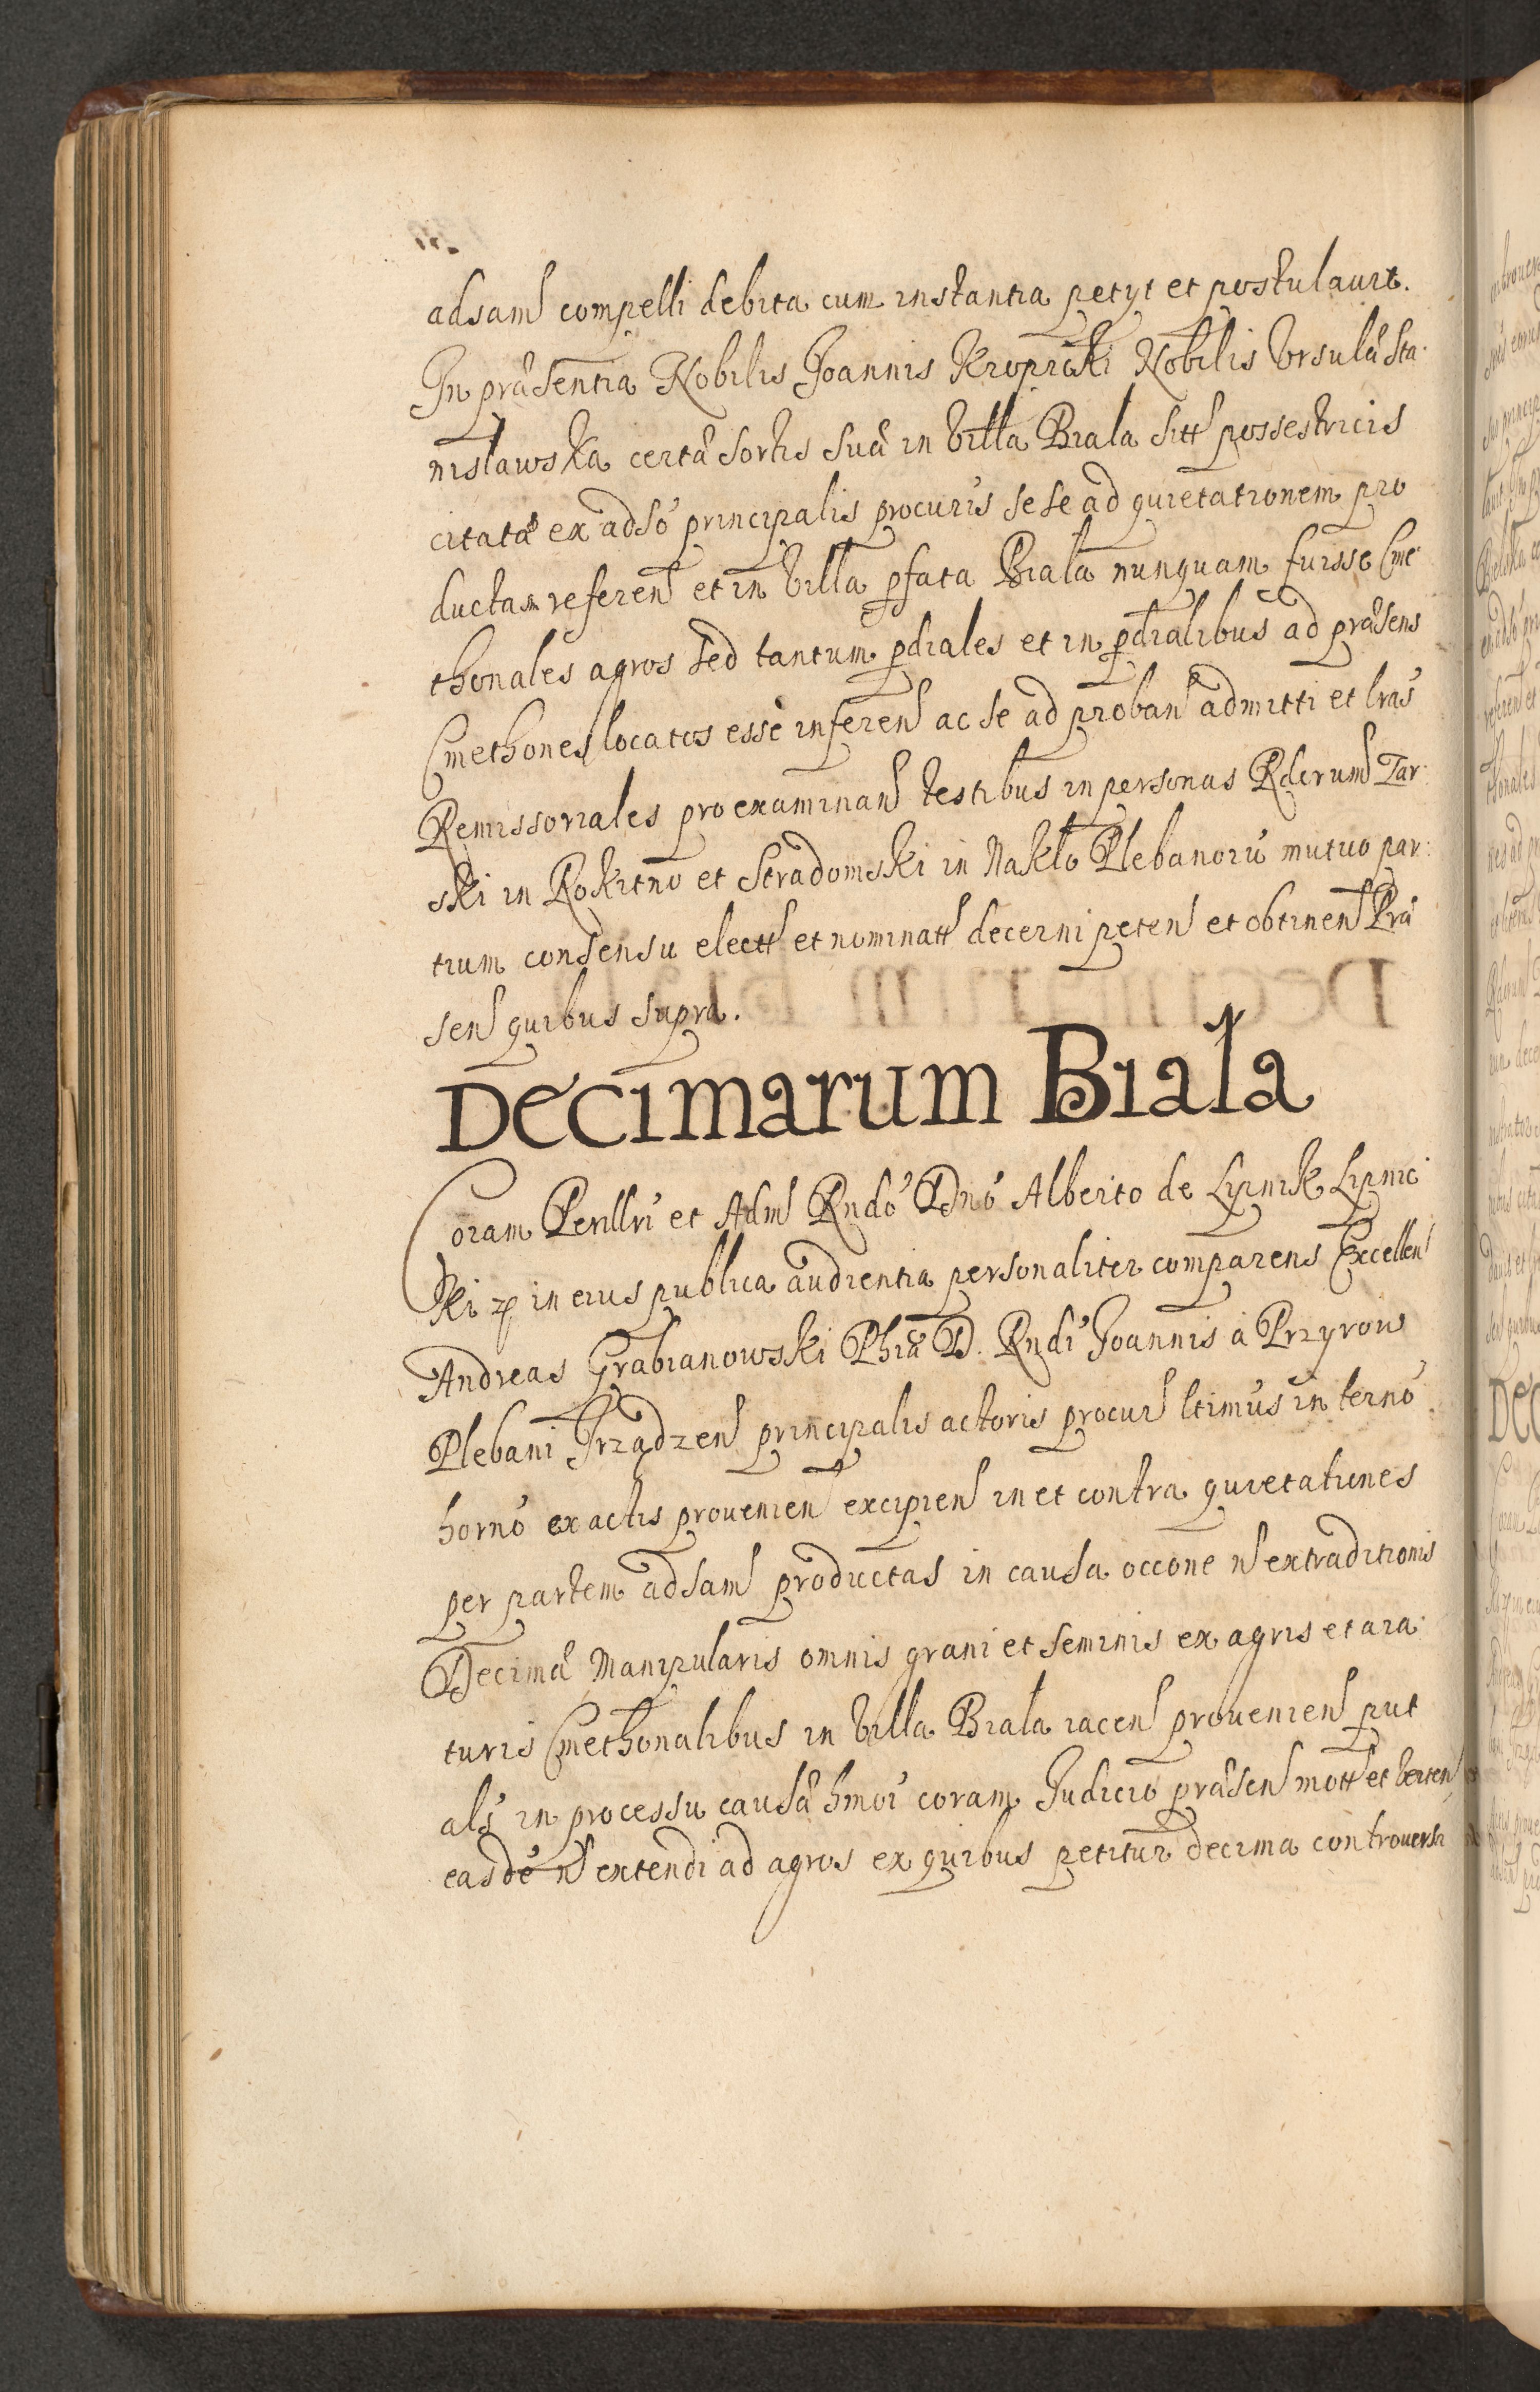 adsam compelli debita cum instantia petyt et postulauit.
In præsentia Nobilis Joannis Kropicki Nobilis Vrsulæ Sta:
nislawska certæ Sortis Suæ in Villa Biala Sitt possestricis
citatæ ex adsó principalis procuris sese ad quietationem pro
ductam referen et in Villa pfata Biala nunquam fuisse Cme
thonales agros sed tantum pdiales et in pdialibus ad præsens
Cmethones locatos esse inferen ac se ad proban admitti et lras
Remissoriales pro examinan testibus in personas Rdorum Tar:
ski in Rokitno et Stradomski in Naklo Plebanorū mutuo par:
tium consensu electt et nominatt decerni peten et obtinen Præ
sen quibus supra.
Decimarum Biala
Coram Perillri et Adm Rndo Dno Alberto de Lipnik Lipnic
ki in eius publica audientia personaliter comparens Excellen
Andreas Grabianowski Phiæ D. Rndi Joannis à Przyrow
Plebani Irządzen principalis actoris procur ltimus in termo
horno ex actis prouenien excipien in et contra quietationes
per partem adsam productas in causa occone n extraditionis
Decimæ Manipularis omnis grani et seminis ex agris et ara
turis Cmethonalibus in Villa Biala iacen prouenien put
als in processu causæ hmoi coram Judicio præsen mott et verten
easdē n extendi ad agros ex quibus petitur decima controuersi